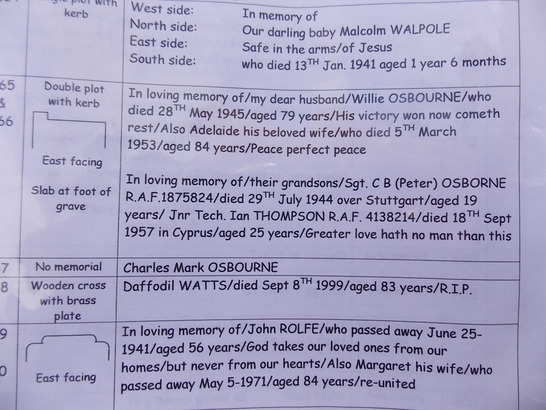 plot with
kerb
West side: In memory of
North side: Our darling baby Malcolm WALPOLE
East side: Safe in the arms/of Jesus
South side: who died 13TH Jan. 1941 aged 1 year 6 months
65
&
66
Double plot
with kerb
East facing
Slab at foot of
grave
In loving memory of/my dear husband/Willie OSBOURNE/who
died 28TH May 1945/aged 79 years/His victory won now cometh
rest/Also Adelaide his beloved wife/who died 5TH March
1953/aged 84 years/Peace perfect peace
In loving memory of/their grandsons/Sgt. C B (Peter) OSBORNE
R.A.F.1875824/died 29TH July 1944 over Stuttgart/aged 19
years/ Jnr Tech. Ian THOMPSON R.A.F. 4138214/died 18TH Sept
1957 in Cyprus/aged 25 years/Greater love hath no man than this
7
No memorial
Charles Mark OSBOURNE
8
Wooden cross
with brass
plate
Daffodil WATTS/died Sept 8TH 1999/aged 83 years/R.I.P.
9
0
East facing
In loving memory of/John ROLFE/who passed away June 25-
1941/aged 56 years/God takes our loved ones from our
homes/but never from our hearts/Also Margaret his wife/who
passed away May 5-1971/aged 84 years/re-united